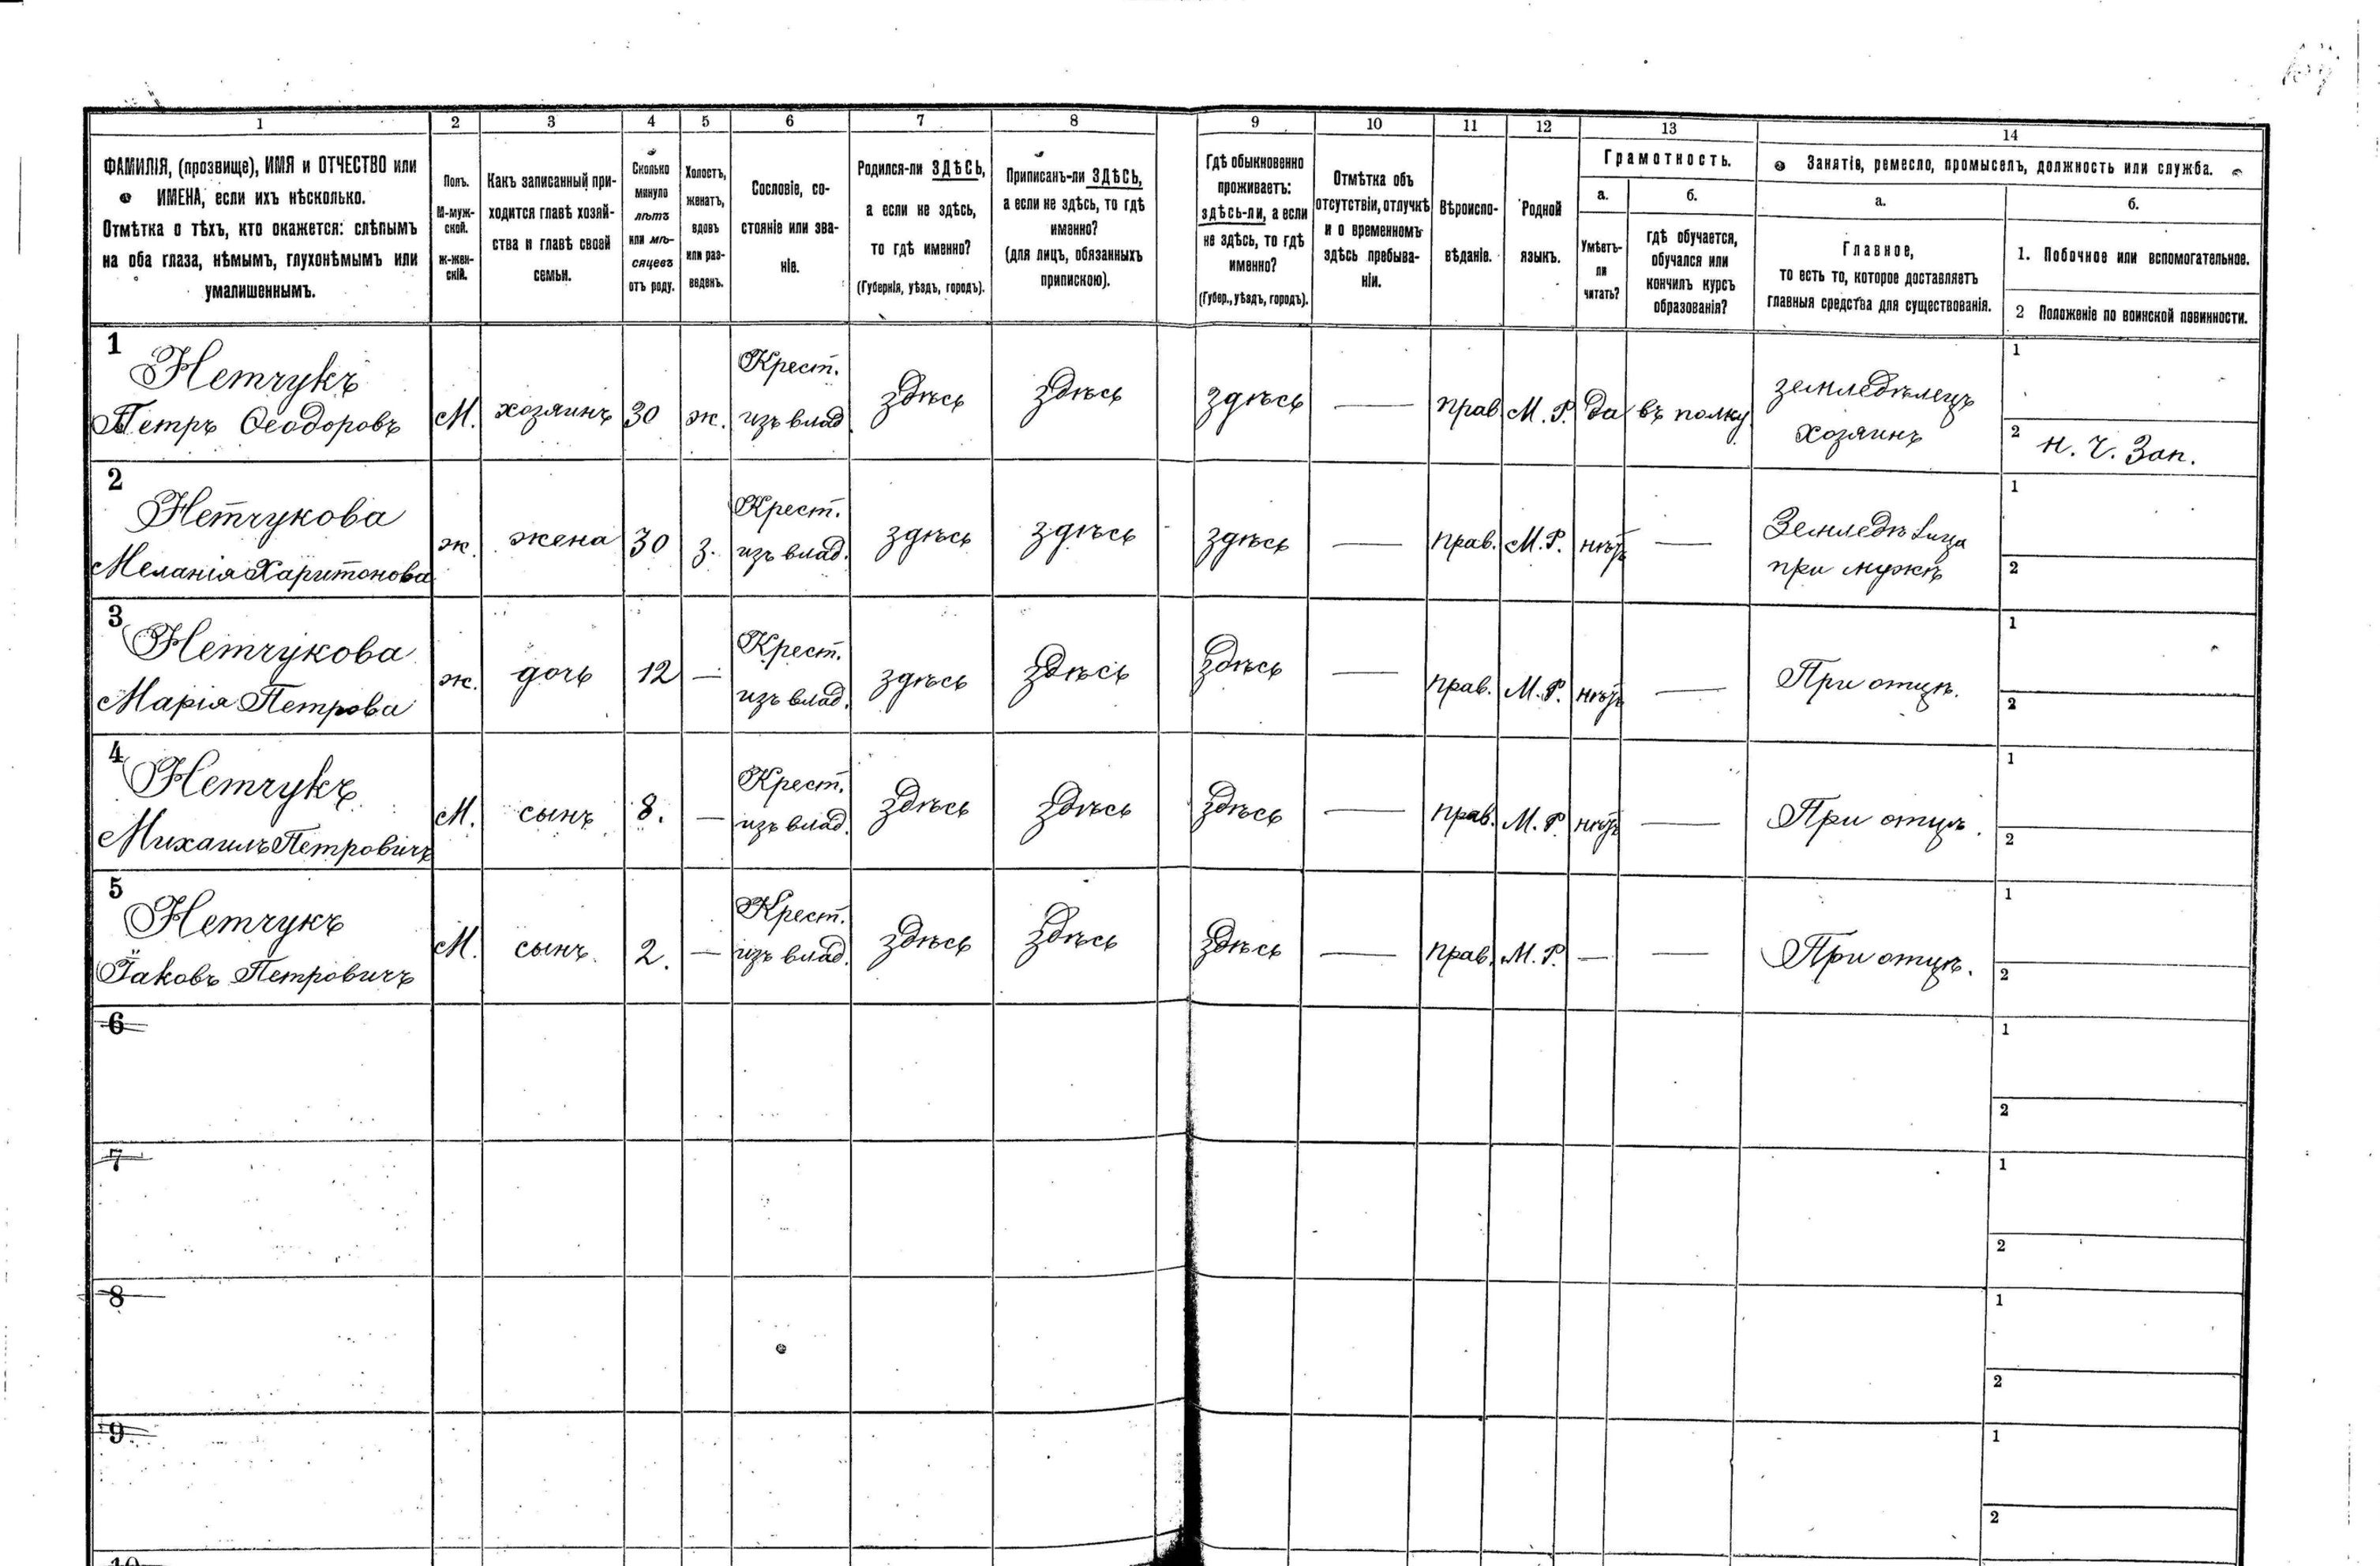 1 2 3 4 5 6 7 8 9 10 11 12 13 14
ФАМИЛІЯ, (прозвище), ИМЯ и ОТЧЕСТВО или
ИМЕНА, если ихъ нѣсколько.
Отмѣтка о тѣхъ, кто окажется: слѣпымъ
на оба глаза, нѣмымъ, глухонѣмымъ или
умалишеннымъ.
Полъ.
М-муж-
ской.
ж-жен-
скій.
Какъ записанный при-
ходится главѣ хозяй-
ства и главѣ своей
семьи.
Сколько
минуло
лѣтъ
или мѣ-
сяцевъ
отъ роду.
Холостъ,
женатъ,
вдовъ
или раз-
веденъ.
Сословіе, со-
стояніе или зва-
ніе.
Родился-ли ЗДѢСЬ,
а если не здѣсь,
то гдѣ именно?
(Губернія, уѣздъ, городъ).
Приписанъ-ли ЗДѢСЬ,
а если не здѣсь, то гдѣ
именно?
(для лицъ, обязанныхъ
припискою).
Гдѣ обыкновенно
проживаетъ:
здѣсь-ли, а если
не здѣсь, то гдѣ
именно?
(Губер., уѣздъ, городъ).
Отмѣтка объ
отсутствіи, отлучкѣ
и о временномъ
здѣсь пребыва-
ніи.
Вѣроиспо-
вѣданіе.
Родной
языкъ.
Грамотность.
а.
Умѣетъ-
ли
читать?
б.
гдѣ обучается,
обучался или
кончилъ курсъ
образованія?
Занятіе, ремесло, промыселъ, должность или служба.
а.
Главное,
то есть то, которое доставляетъ
главныя средства для существованія.
б.
1. Побочное или вспомогательное.
2 Положеніе по воинской повинности.
1
Нетчукъ
Петръ Ѳеодоровъ
М.
хозяинъ
30
ж.
Крест.
изъ влад.
здѣсь
здѣсь
здѣсь
—
прав.
М. Р.
Да
въ полку
земледѣлецъ
хозяинъ
1
2 н. ч. Зап.
2
Нетчукова
Меланія Харитонова
ж.
жена
30
з.
Крест.
изъ влад.
здѣсь
здѣсь
здѣсь
—
прав.
М. Р.
нѣтъ
—
Земледѣлица
при мужѣ
1
2
3
Нетчукова
Марія Петрова
ж.
дочь
12
—
Крест.
изъ влад.
здѣсь
здѣсь
здѣсь
—
прав.
М. Р.
нѣтъ
—
При отцѣ.
1
2
4
Нетчукъ
Михаилъ Петровичъ
М.
сынъ
8.
—
Крест.
изъ влад.
здѣсь
здѣсь
здѣсь
—
прав.
М. Р.
нѣтъ
—
При отцѣ.
1
2
5
Нетчукъ
Іаковъ Петровичъ
М.
сынъ.
2.
—
Крест.
изъ влад.
здѣсь
здѣсь
здѣсь
—
прав.
М. Р.
—
—
При отцѣ.
1
2
6
1
2
7
1
2
8
1
2
9.
1
2
10